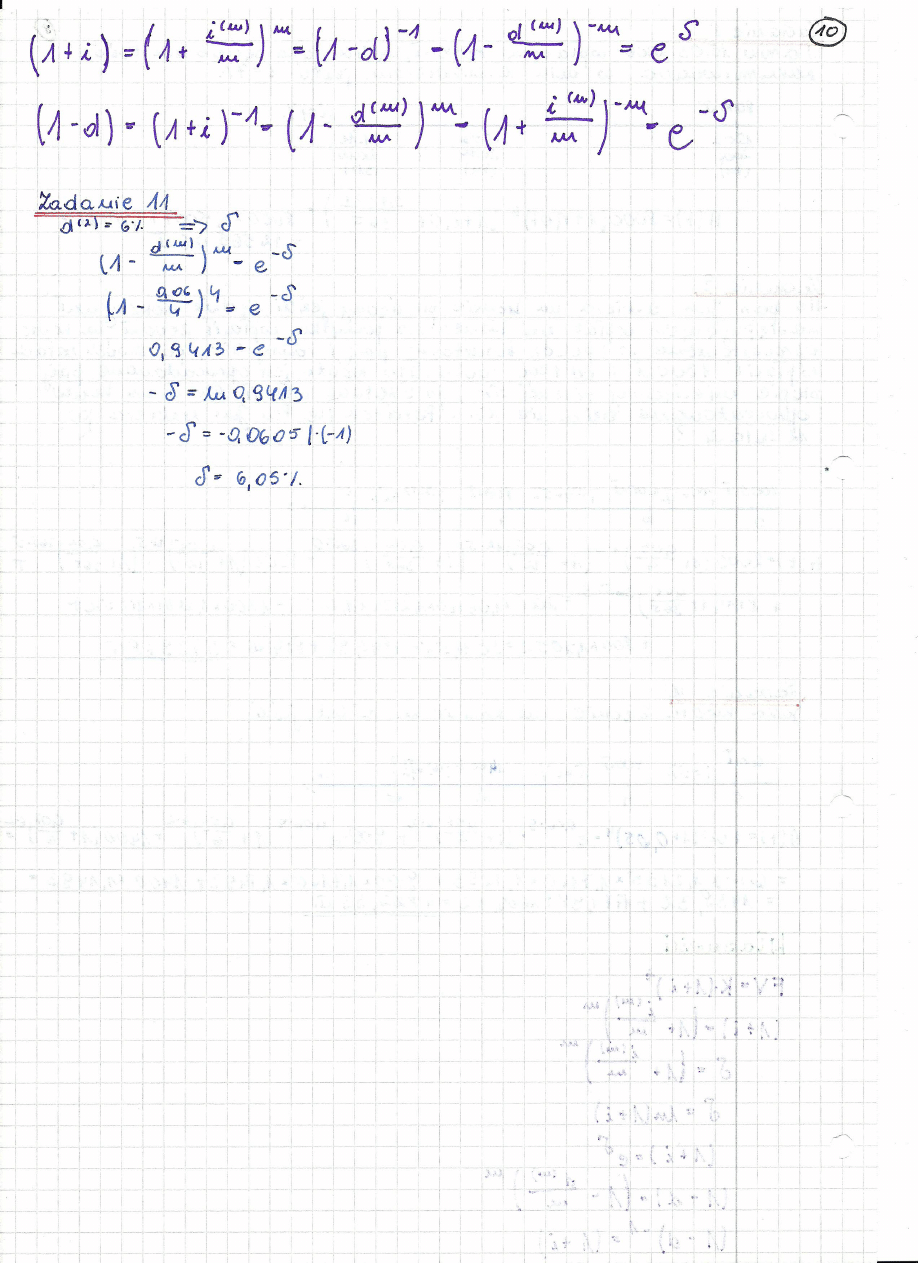 10
(1+i) = (1+ i^(m)/m)^m = (1-d)^-1 = (1- d^(m)/m)^-m = e^δ
(1-d) = (1+i)^-1 = (1- d^(m)/m)^m = (1+ i^(m)/m)^-m = e^-δ
Zadanie 11
d^(2) = 6% => δ
(1- d^(m)/m)^m = e^-δ
(1- 0,06/4)^4 = e^-δ
0,9413 = e^-δ
-δ = ln 0,9413
-δ = -0,0605 |·(-1)
δ = 6,05%